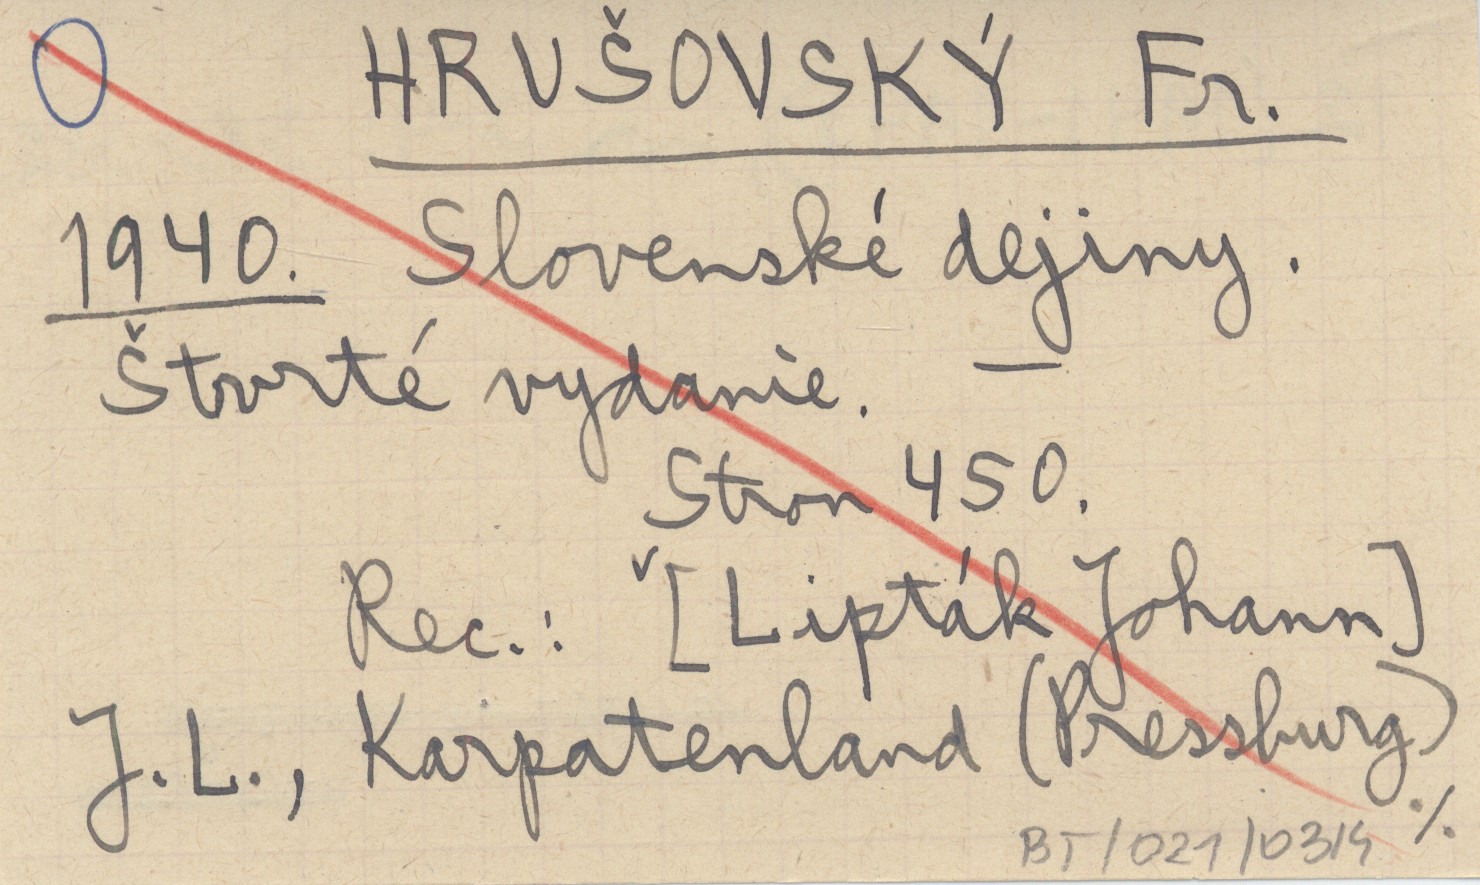 HRUŠOVSKÝ Fr.
1940. Slovenské dejiny.
Štvrté vydanie. —
Stron 450.
Rec.: [Lipták Johann]
J. L., Karpatenland (Pressburg)
./.
BT/021/0314